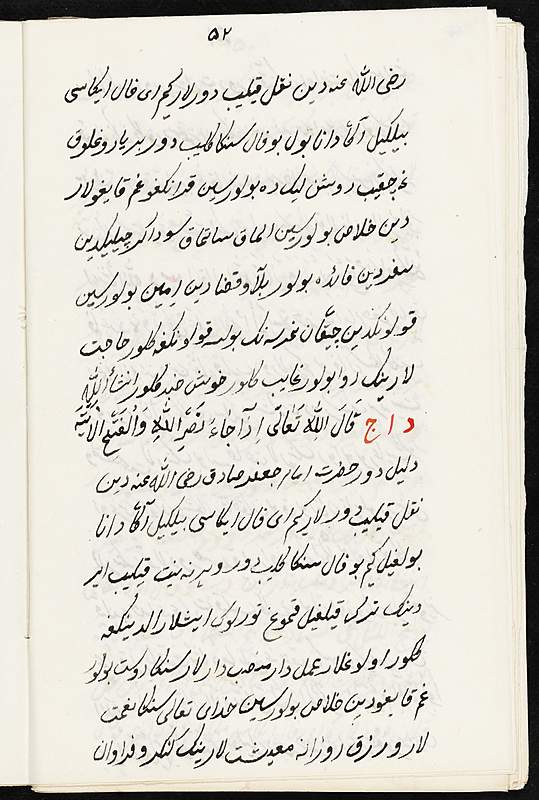 ۵۲
رضی الله عنه دین نقل قیلیب دورلار کیم ای فال ایکاسی
بیلکیل آکاه دانا بول بو فال سنکا کلیب دور بر یاروغلوق
غه چقیب روشن لیک ده بولورسین قدانکغو غم قایغولار
دین خلاص بولورسین الماق ساتماق سوداکر چیلیکدین
سفردین فائده بولور بلا و قضا دین امین بولورسین
قولونکدین چیققان نرسه نک بولسه قولونکغه کلور حاجت
لارینک روا بولور غایب کلور خوش خبر کلور انشأ الله
د ا ج قَالَ اللهُ تَعَالَی اِذَا جَاءَ نَصْرُ اللهِ وَالْفَتْحُ الآیة
دلیل دور حضرت امام جعفر صادق رضی الله عنه دین
نقل قیلیب دورلار کیم ای فال ایکاسی بیلکیل آکاه دانا
بولغیل کیم بو فال سنکا کلیب دور و هر نه نیت قیلیب ایر
دینک ترک قیلغیل قموغ تورلوک ایشلار الدینکغه
کلور اولوغلار عمل دار منصب دارلار سنکا دوست بولور
غم قایغودین خلاص بولورسین خدای تعالی سنکا نعمت
لار و رزق روزانه معیشت لارینک کنکرو فراوان